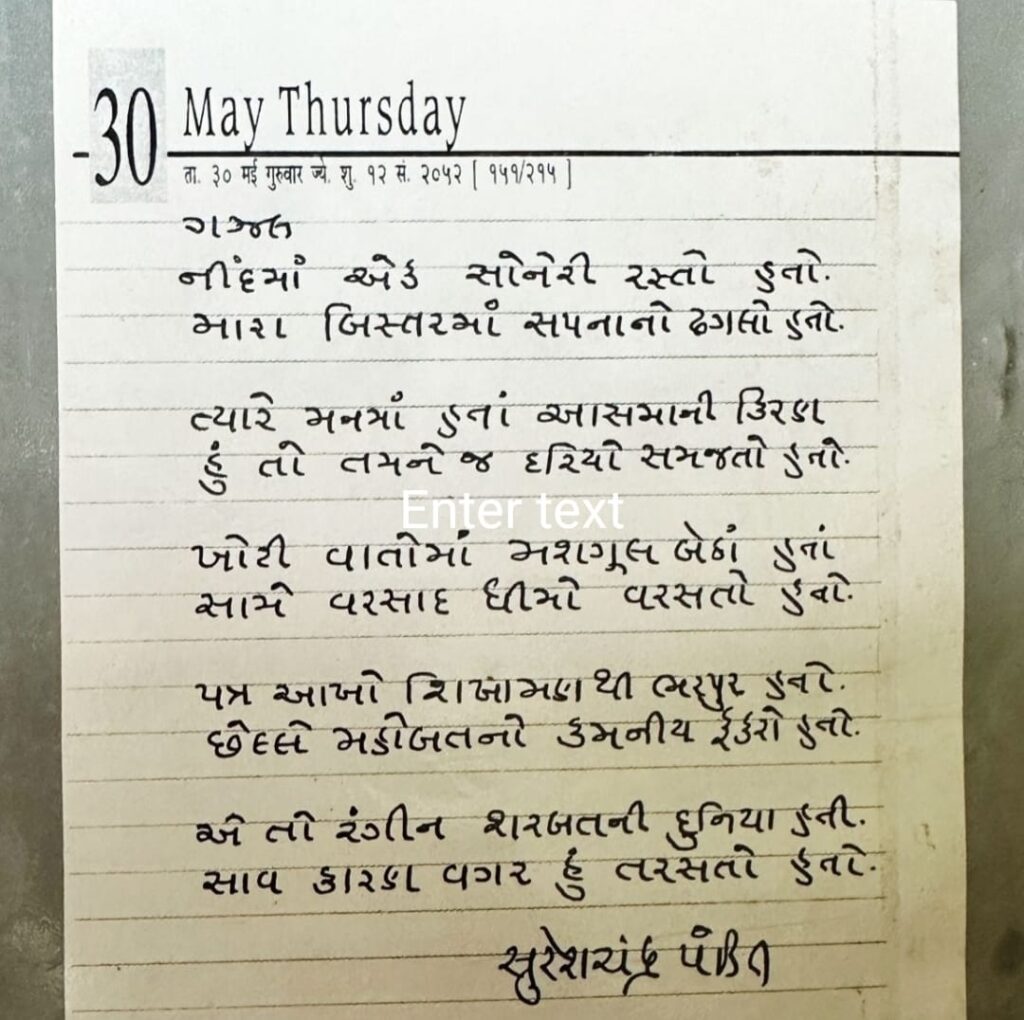 30 May Thursday
ता. ३० मई गुरुवार ज्ये. शु. १२ सं. २०५२ [ १५१/२१५ ]
ગઝલ
નીંદમાં એક સોનેરી રસ્તો હતો.
મારા બિસ્તરમાં સપનાનો ઢગલો હતો.
ત્યારે મનમાં હતાં આસમાની કિરણ
હું તો તમને જ દરિયો સમજતો હતો.
Enter text
ખોટી વાતોમાં મશગૂલ બેઠાં હતાં
સામે વરસાદ ધીમો વરસતો હતો.
પત્ર આખો શિખામણથી ભરપુર હતો.
છેલ્લે મહોબતનો કમનીય ફકરો હતો.
એ તો રંગીન શરબતની દુનિયા હતી.
સાવ કારણ વગર હું તરસતો હતો.
સુરેશચંદ્ર પંડિત